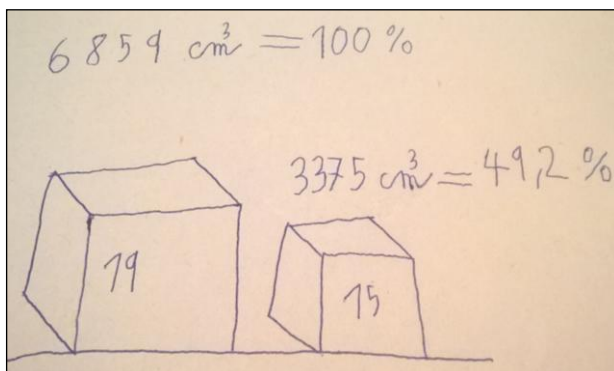 6859 cm³ = 100 %
3375 cm³ = 49,2 %
19
15